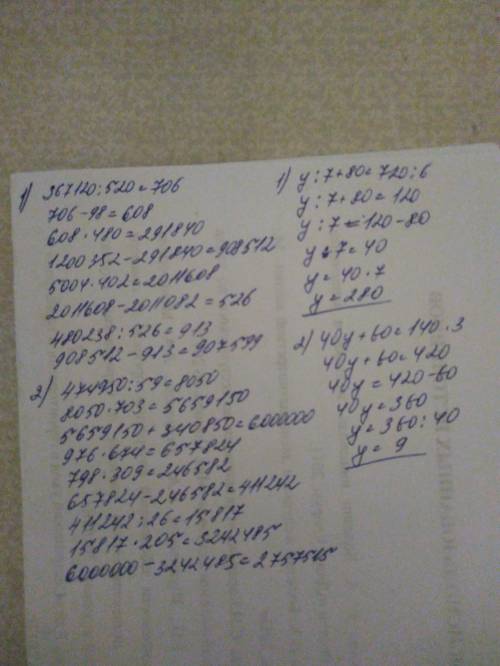 1) 367120:520=706
706-98=608
608·480=291840
1200352-291840=908512
5004·402=2011608
2011608-2011082=526
480238:526=913
908512-913=907599
2) 474950:59=8050
8050·703=5659150
5659150+340850=6000000
976·674=657824
798·309=246582
657824-246582=411242
411242:26=15817
15817·205=3242485
6000000-3242485=2757515
1) y:7+80=720:6
y:7+80=120
y:7=120-80
y:7=40
y=40·7
y=280
2) 40y+60=140·3
40y+60=420
40y=420-60
40y=360
y=360:40
y=9